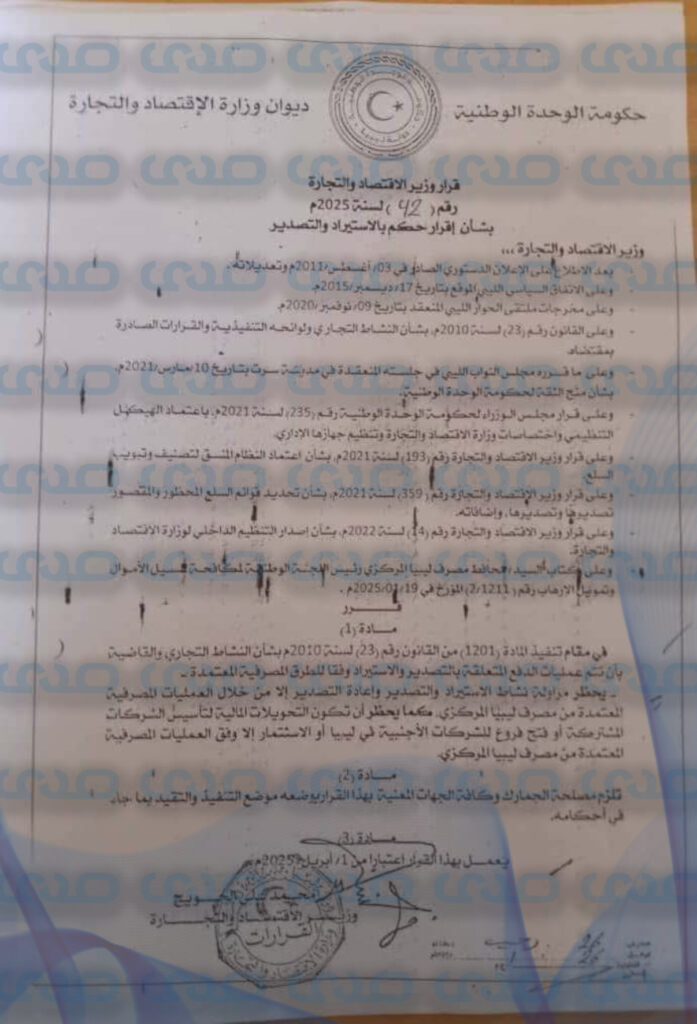 حكومة الوحدة الوطنية
ديوان وزارة الإقتصاد والتجارة
قرار وزير الاقتصاد والتجارة
رقم (42) لسنة 2025م
بشأن إقرار حكم بالاستيراد والتصدير
وزير الاقتصاد والتجارة ،،،
- بعد الاطلاع على الإعلان الدستوري الصادر في 03/أغسطس/2011م وتعديلاته.
- وعلى الاتفاق السياسي الليبي الموقع بتاريخ 17/ديسمبر/2015م.
- وعلى مخرجات ملتقى الحوار الليبي المنعقد بتاريخ 09/نوفمبر/2020م.
- وعلى القانون رقم (23) لسنة 2010م. بشأن النشاط التجاري ولوائحه التنفيذية والقرارات الصادرة
بمقتضاه.
- وعلى ما قرره مجلس النواب الليبي في جلسته المنعقدة في مدينة سرت بتاريخ 10/مارس/2021م.
بشأن منح الثقة لحكومة الوحدة الوطنية.
- وعلى قرار مجلس الوزراء لحكومة الوحدة الوطنية رقم (235) لسنة 2021م. باعتماد الهيكل
التنظيمي واختصاصات وزارة الاقتصاد والتجارة وتنظيم جهازها الإداري.
- وعلى قرار وزير الاقتصاد والتجارة رقم (193) لسنة 2021م. بشأن اعتماد النظام المنسق لتصنيف وتبويب
السلع.
- وعلى قرار وزير الإقتصاد والتجارة رقم (359) لسنة 2021م. بشأن تحديد قوائم السلع المحظور والمقصور
تصديرها وتصديرها. وإضافاته.
- وعلى قرار وزير الاقتصاد والتجارة رقم (14) لسنة 2022م. بشأن إصدار التنظيم الداخلي لوزارة الاقتصاد
والتجارة.
- وعلى كتاب السيد/ محافظ مصرف ليبيا المركزي رئيس اللجنة الوطنية لمكافحة غسيل الأموال
وتمويل الإرهاب رقم (2/1211) المؤرخ في 2025/01/19م.
قـــــرر
مـــادة (1)
في مقام تنفيذ المادة (1201) من القانون رقم (23) لسنة 2010م بشأن النشاط التجاري والقاضية
بأن تتم عمليات الدفع المتعلقة بالتصدير والاستيراد وفقا للطرق المصرفية المعتمدة:-
- يحظر مزاولة نشاط الاستيراد والتصدير وإعادة التصدير إلا من خلال العمليات المصرفية
المعتمدة من مصرف ليبيا المركزي. كما يحظر أن تكون التحويلات المالية لتأسيس الشركات
المشتركة أو فتح فروع للشركات الأجنبية في ليبيا أو الاستثمار إلا وفق العمليات المصرفية
المعتمدة من مصرف ليبيا المركزي.
مـــادة (2)
تلزم مصلحة الجمارك وكافة الجهات المعنية بهذا القرار بوضعه موضع التنفيذ والتقيد بما جاء
في أحكامه.
مـــادة (3)
يعمل بهذا القرار اعتبارا من 1/أبريل/2025م.
محمد الحويج
وزير الاقتصاد والتجارة
القرارات
صدى